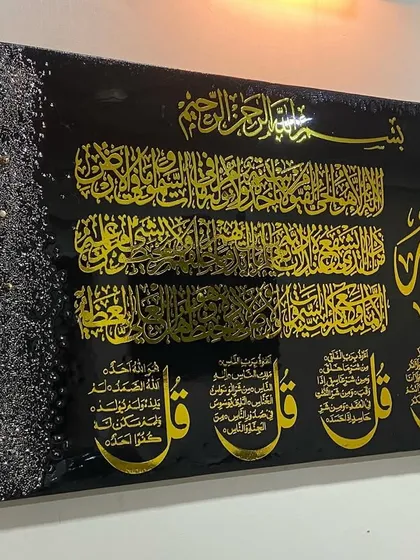 بسم الله الرحمن الرحيم
الله لا إله إلا هو الحي القيوم لا تأخذه سنة ولا نوم له ما في السموات وما في الأرض
من ذا الذي يشفع عنده إلا بإذنه يعلم ما بين أيديهم وما خلفهم ولا يحيطون بشيء من علمه
إلا بما شاء وسع كرسيه السموات والأرض ولا يؤده حفظهما وهو العلي العظيم
قل
أعوذ برب الفلق
من شر ما خلق
ومن شر غاسق إذا
وقب ومن شر النفثت
في العقد ومن شر
حاسد إذا حسد
قل
أعوذ برب الناس
ملك الناس إله
الناس من شر الوسواس
الخناس الذي يوسوس
في صدور الناس من
الجنة والناس
قل
هو الله أحد
الله الصمد لم
يلد ولم يولد
ولم يكن له
كفوا أحد